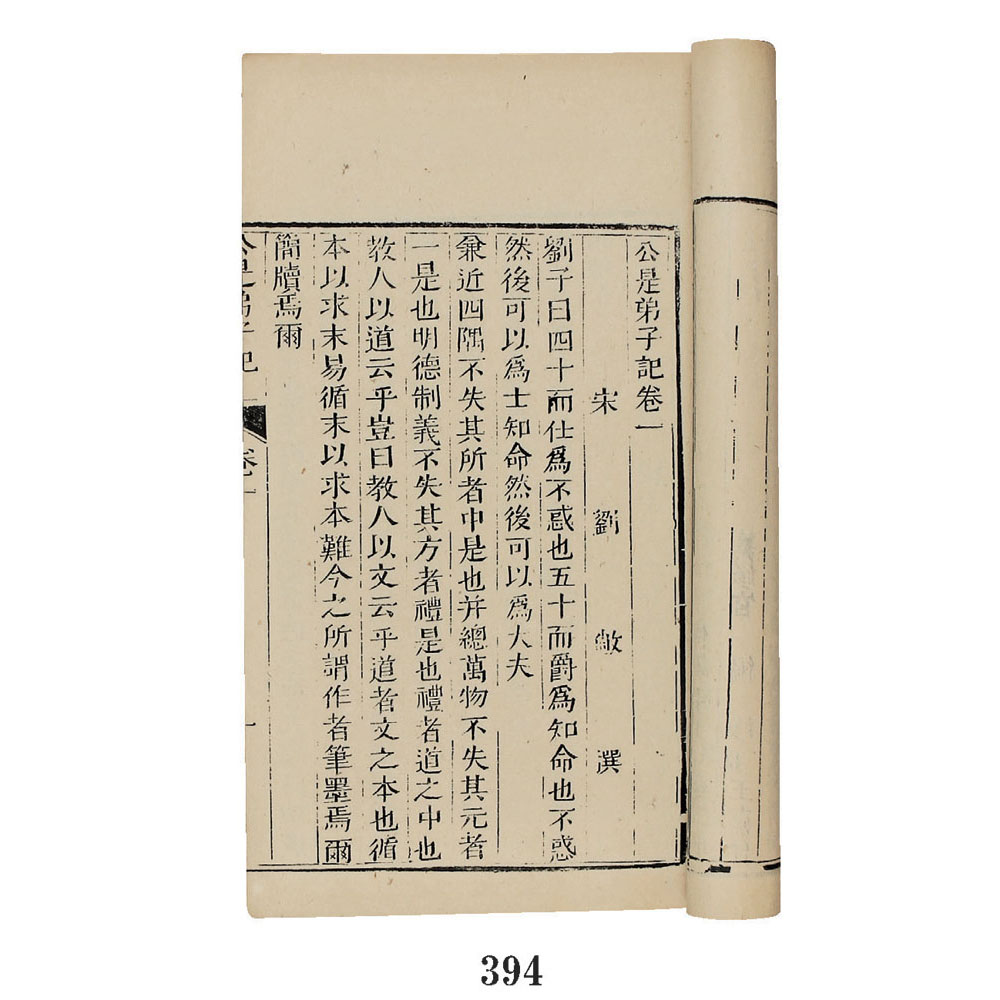 公是弟子記卷一
宋劉敞撰
劉子曰四十而仕爲不惑也五十而爵爲知命也不惑
然後可以爲士知命然後可以爲大夫
兼近四隅不失其所者中是也并總萬物不失其元者
一是也明德制義不失其方者禮是也禮者道之中也
教人以道云乎豈曰教人以文云乎道者文之本也循
本以求末易循末以求本難今之所謂作者筆墨焉爾
簡牘焉爾
公是弟子記
卷一
一
394